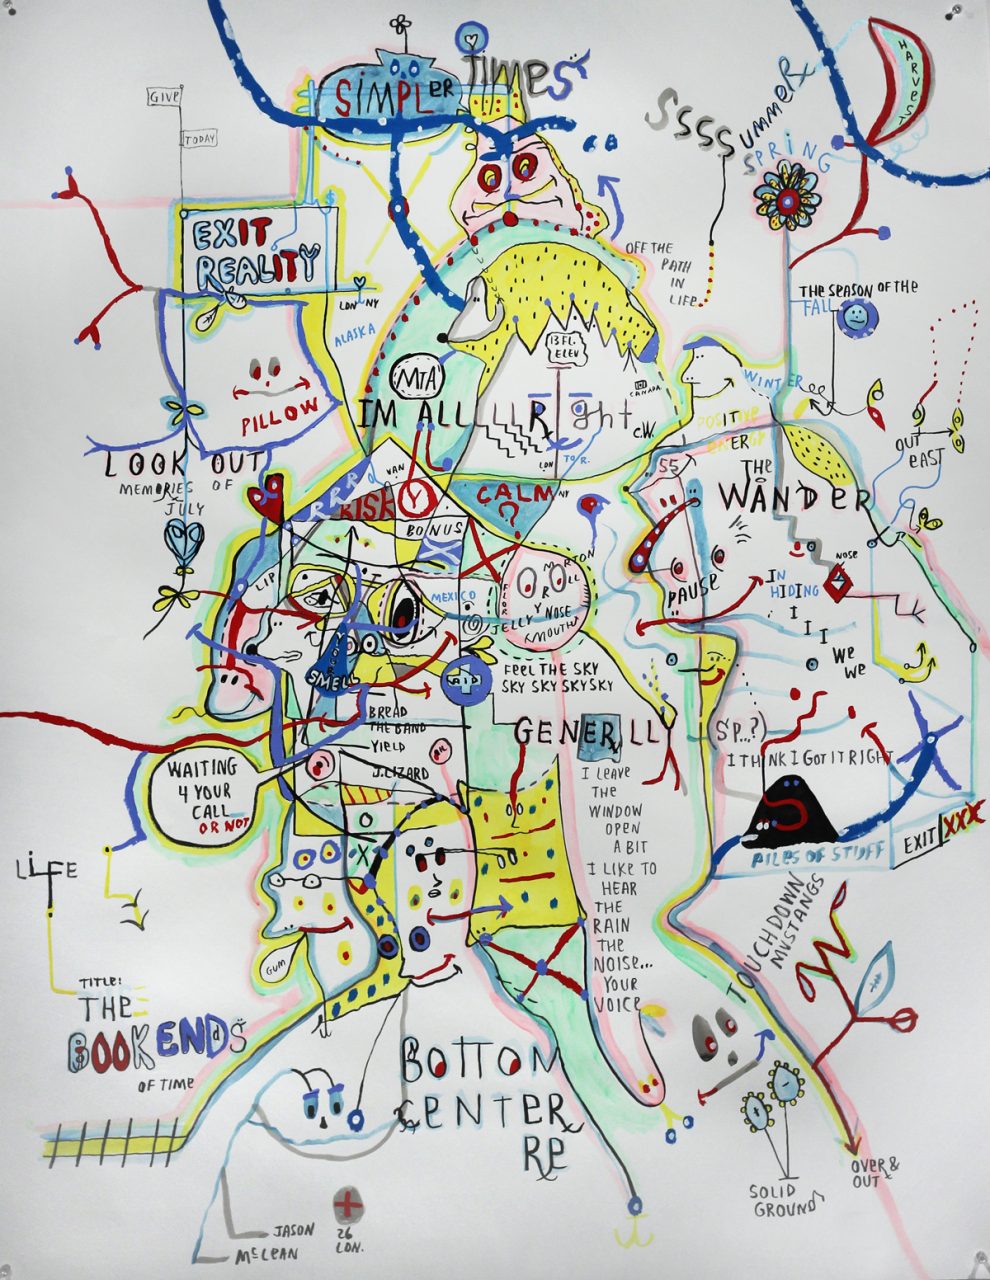 GIVE
TODAY
SiMPLER
TiMES
SSSSUMMER
SPRiNG
HARVEST
EXIT
REALITY
LDN NY
ALASKA
OFF THE
PATH
IN
LIFE
THE SEASON OF THE
FALL
13 FL.
ELEV
MTA
CANADA
IM ALLLLLRight
C.W.
LDN
TOR.
WINTER
POSITIVE
ENERGY
PILLOW
LOOK OUT
MEMORIES OF
JULY
OUT
EAST
55
THE
WANDER
VAN
RRRR
RISK
Y
BONUS
CALM
?
NY
LIP
MEXICO
MORTON
JELLY
NOSE
& MOUTH
PAUSE
NOSE
IN
HIDING
I
I
I
WE
WE
YOUR
SMELL
AID
FEEL THE SKY
SKY SKY SKY SKY
BREAD
THE BAND
YIELD
J. LIZARD
GENERLLY
(SP...?)
I THINK I GOT IT RIGHT
WAITING
4 YOUR
CALL
OR NOT
I LEAVE
THE
WINDOW
OPEN
A BIT
I LIKE TO
HEAR
THE
RAIN
THE
NOISE...
YOUR
VOICE
O
X
PILES OF STUFF
EXIT XXX
LiFE
GUM
TOUCHDOWN
MUSTANGS
TITLE:
THE
BOOKENDS
OF TIME
BOTTOM
CENTER
RE
SOLID
GROUND
OVER &
OUT
JASON
McLEAN
26
LDN.